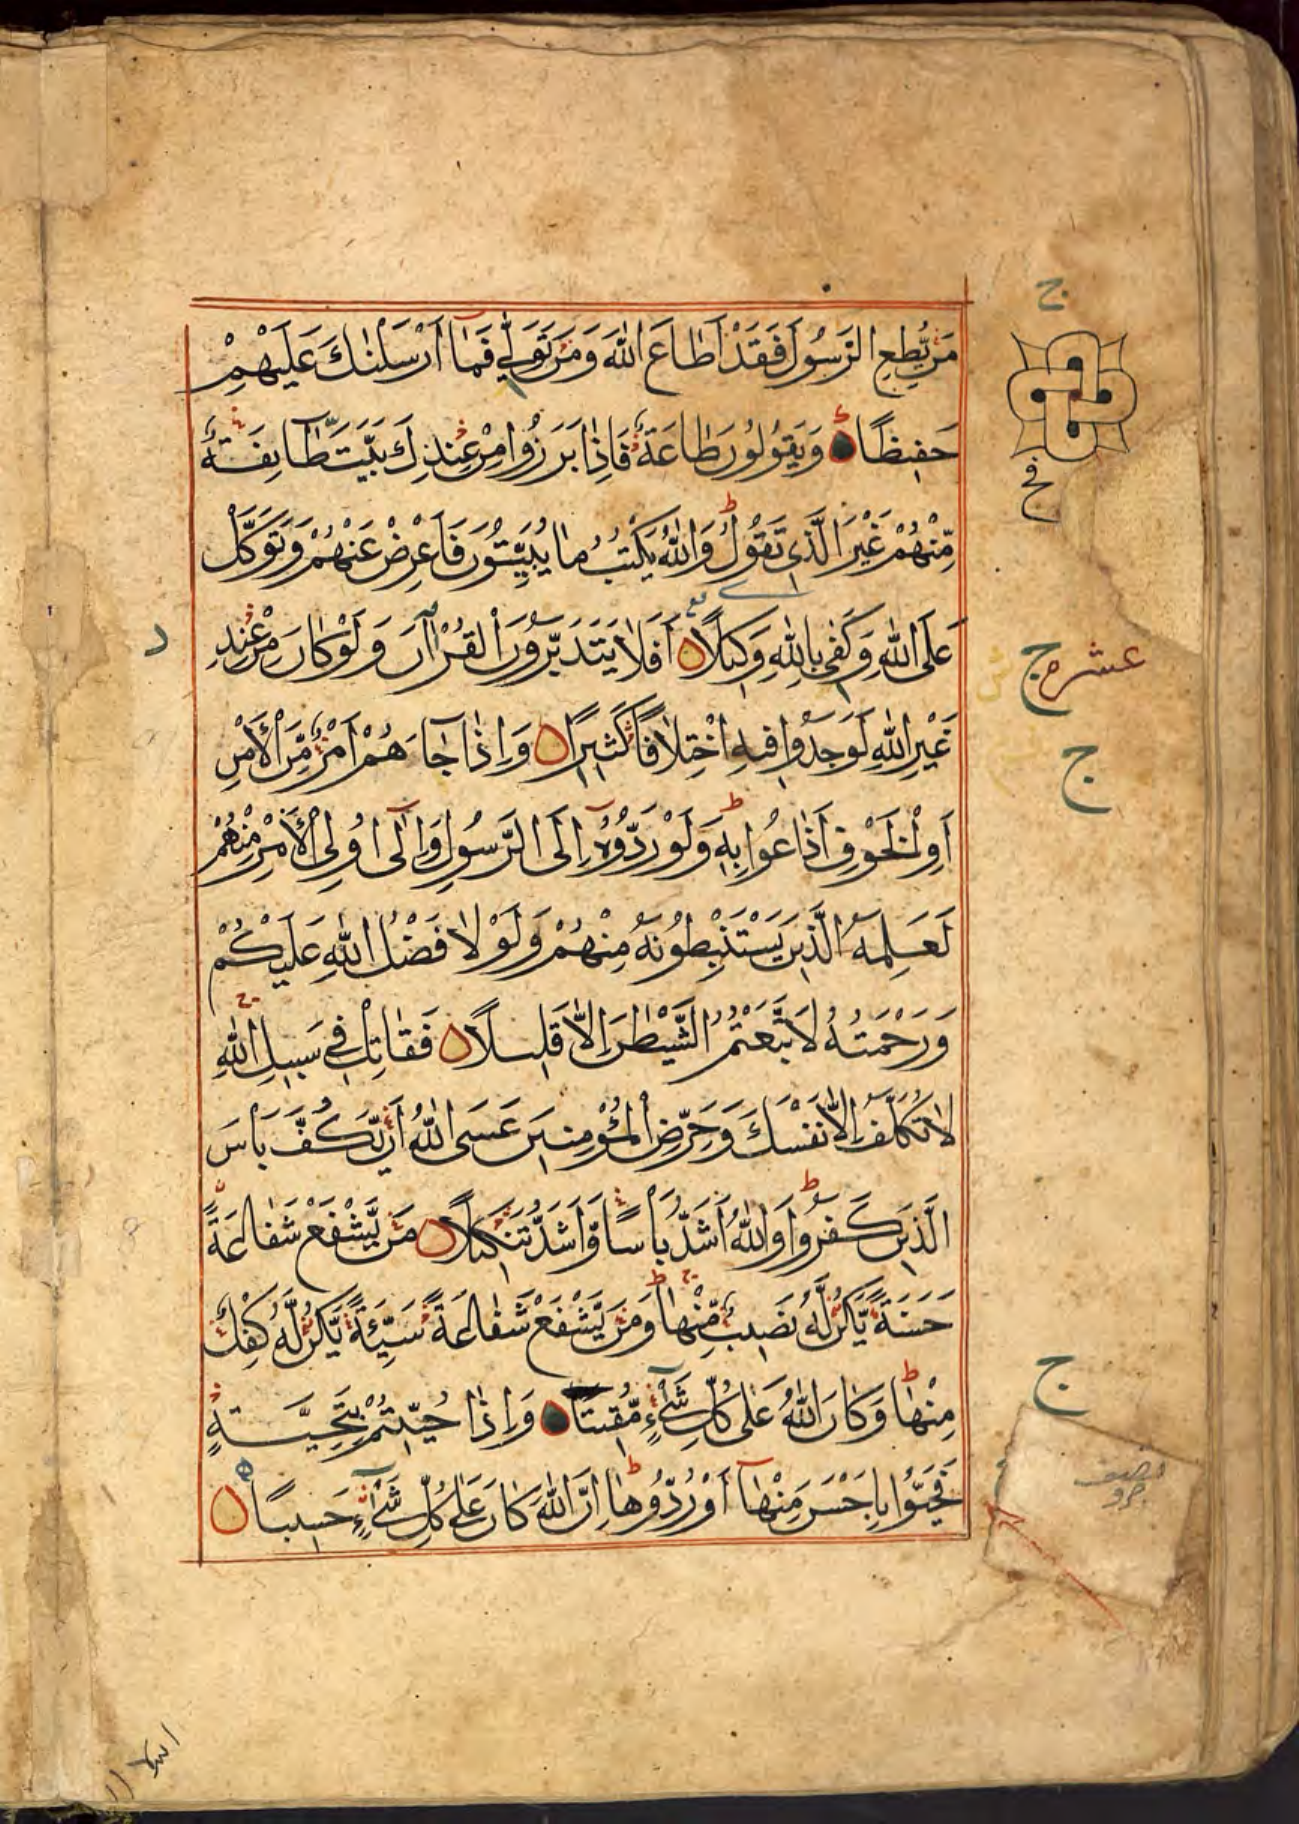 مَنْ يُّطِعِ الرَّسُوْلَ فَقَدْ اَطَاعَ اللّٰهَ وَمَنْ تَوَلّٰى فَمَآ اَرْسَلْنٰكَ عَلَيْهِمْ
حَفِيْظًا وَيَقُوْلُوْنَ طَاعَةٌ فَاِذَا بَرَزُوْا مِنْ عِنْدِكَ بَيَّتَ طَّآئِفَةٌ
مِّنْهُمْ غَيْرَ الَّذِى تَقُوْلُ وَاللّٰهُ يَكْتُبُ مَا يُبَيِّتُوْنَ فَاَعْرِضْ عَنْهُمْ وَتَوَكَّلْ
عَلَى اللّٰهِ وَكَفٰى بِاللّٰهِ وَكِيْلًا اَفَلَا يَتَدَبَّرُوْنَ الْقُرْاٰنَ وَلَوْ كَانَ مِنْ عِنْدِ
غَيْرِ اللّٰهِ لَوَجَدُوْا فِيْهِ اخْتِلَافًا كَثِيْرًا وَاِذَا جَآءَهُمْ اَمْرٌ مِّنَ الْاَمْنِ
اَوِ الْخَوْفِ اَذَاعُوْا بِهٖ وَلَوْ رَدُّوْهُ اِلَى الرَّسُوْلِ وَاِلٰٓى اُولِى الْاَمْرِ مِنْهُمْ
لَعَلِمَهُ الَّذِيْنَ يَسْتَنْبِطُوْنَهٗ مِنْهُمْ وَلَوْلَا فَضْلُ اللّٰهِ عَلَيْكُمْ
وَرَحْمَتُهٗ لَاتَّبَعْتُمُ الشَّيْطٰنَ اِلَّا قَلِيْلًا فَقَاتِلْ فِىْ سَبِيْلِ اللّٰهِ
لَا تُكَلَّفُ اِلَّا نَفْسَكَ وَحَرِّضِ الْمُؤْمِنِيْنَ عَسَى اللّٰهُ اَنْ يَّكُفَّ بَاْسَ
الَّذِيْنَ كَفَرُوْا وَاللّٰهُ اَشَدُّ بَاْسًا وَّاَشَدُّ تَنْكِيْلًا مَنْ يَّشْفَعْ شَفَاعَةً
حَسَنَةً يَّكُنْ لَّهٗ نَصِيْبٌ مِّنْهَا وَمَنْ يَّشْفَعْ شَفَاعَةً سَيِّئَةً يَّكُنْ لَّهٗ كِفْلٌ
مِّنْهَا وَكَانَ اللّٰهُ عَلٰى كُلِّ شَىْءٍ مُّقِيْتًا وَاِذَا حُيِّيْتُمْ بِتَحِيَّةٍ
فَحَيُّوْا بِاَحْسَنَ مِنْهَآ اَوْ رُدُّوْهَا اِنَّ اللّٰهَ كَانَ عَلٰى كُلِّ شَىْءٍ حَسِيْبًا
ج
ج
عشره ج
ج
ج